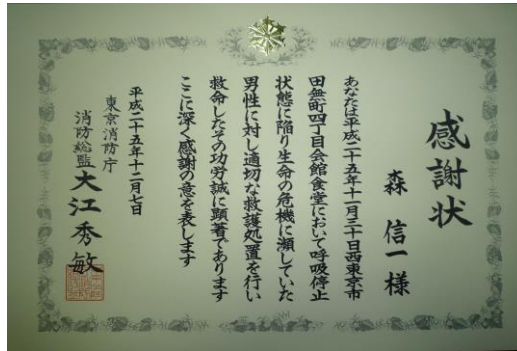 感謝状
森 信一 様
あなたは平成二十五年十一月三十日西東京市
田無町四丁目会館食堂において呼吸停止
状態に陥り生命の危機に瀕していた
男性に対し適切な救護処置を行い
救命したその功労誠に顕著であります
ここに深く感謝の意を表します
平成二十五年十二月七日
東京消防庁
消防総監 大江秀敏